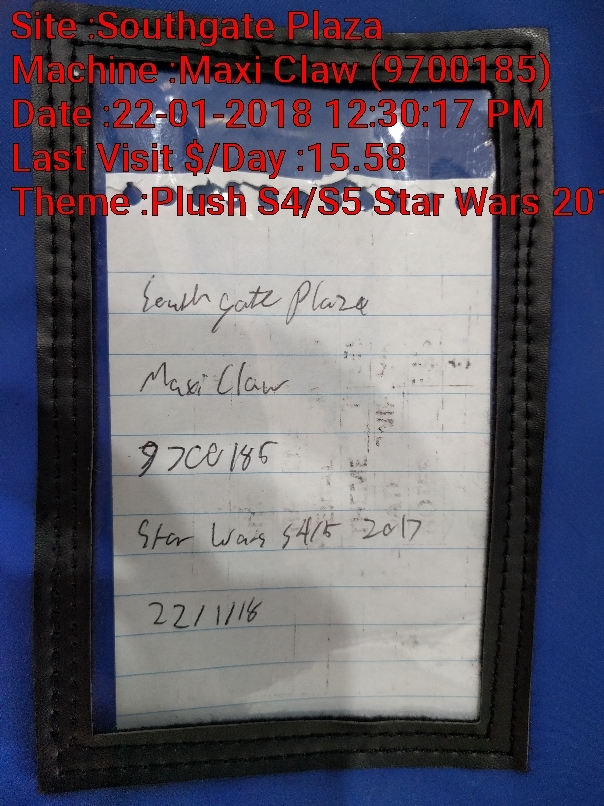 Site :Southgate Plaza
Machine :Maxi Claw (9700185)
Date :22-01-2018 12:30:17 PM
Last Visit $/Day :15.58
Theme :Plush S4/S5 Star Wars 201
South gate Plaza
Maxi Claw
9700185
Star Wars S4/5 2017
22/1/18